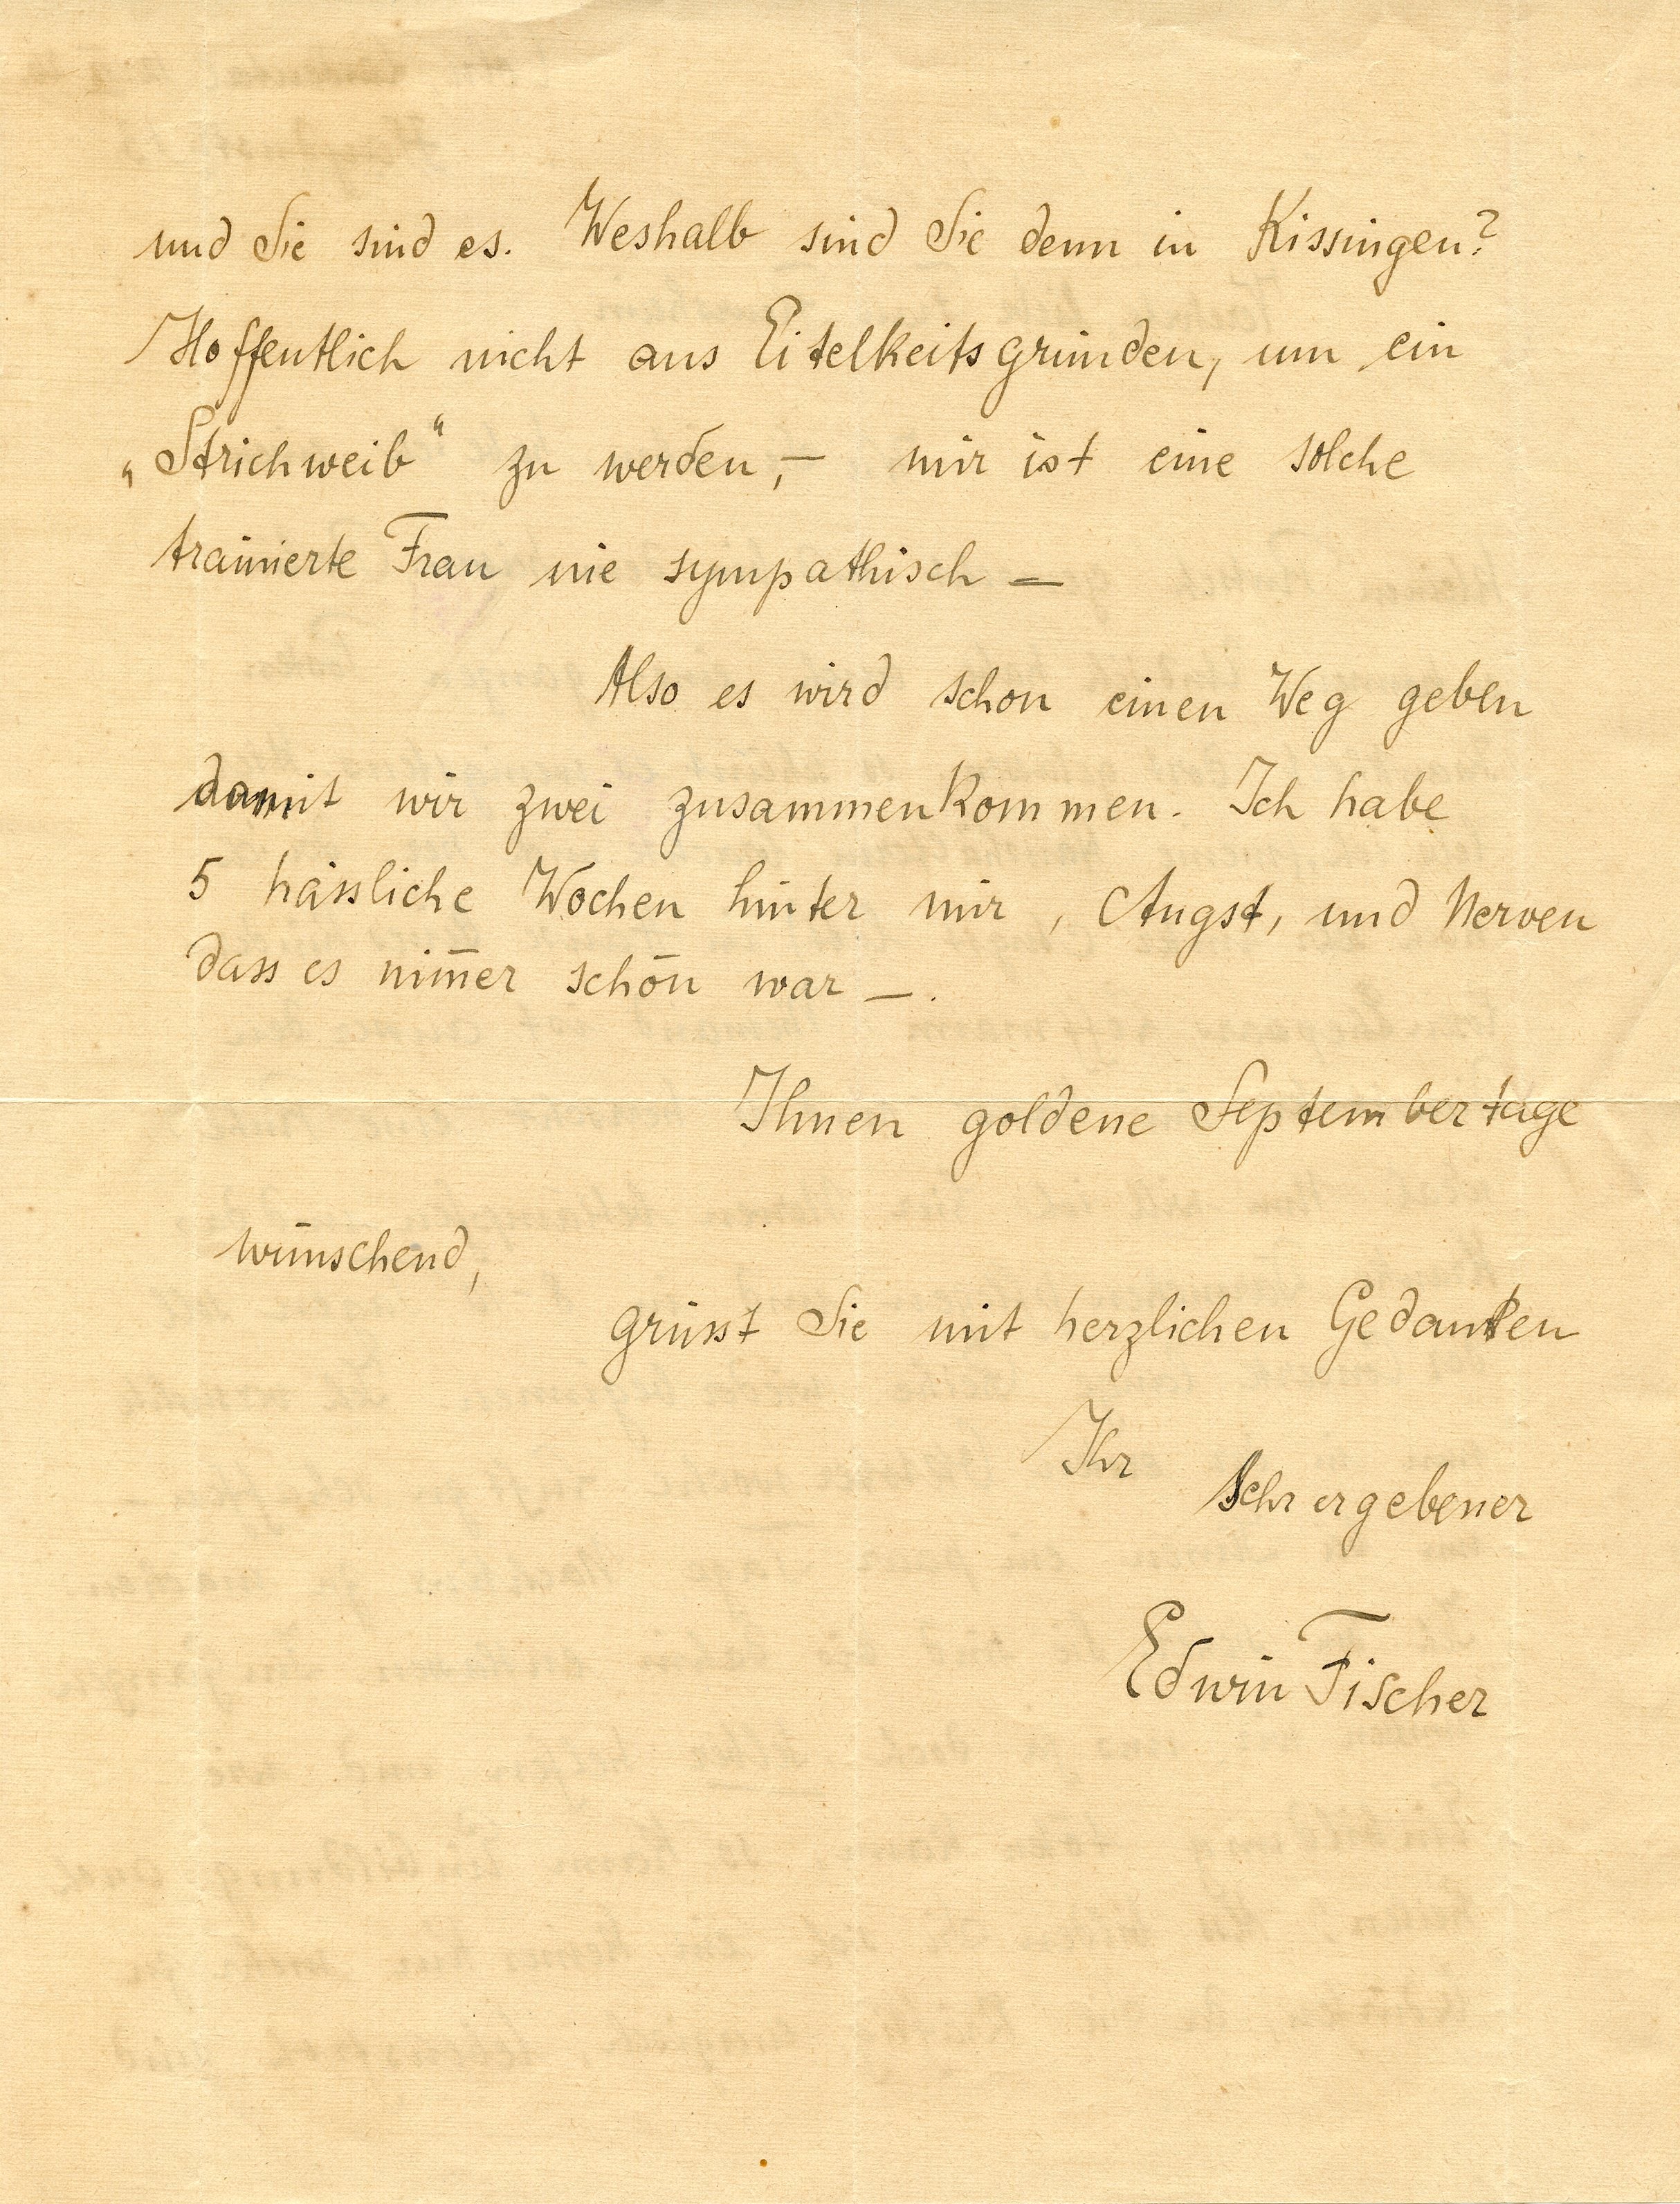 und Sie sind es. Weshalb sind Sie denn in Kissingen?
Hoffentlich nicht aus Eitelkeitsgründen, um ein
„Strichweib“ zu werden, – mir ist eine solche
trainierte Frau nie sympathisch –
Also es wird schon einen Weg geben
damit wir zwei zusammenkommen. Ich habe
5 hässliche Wochen hinter mir, Angst, und Nerven
dass es nim̄er schön war –.
Ihnen goldene Septembertage
wünschend,
grüsst Sie mit herzlichen Gedanken
Ihr
sehr ergebener
Edwin Fischer